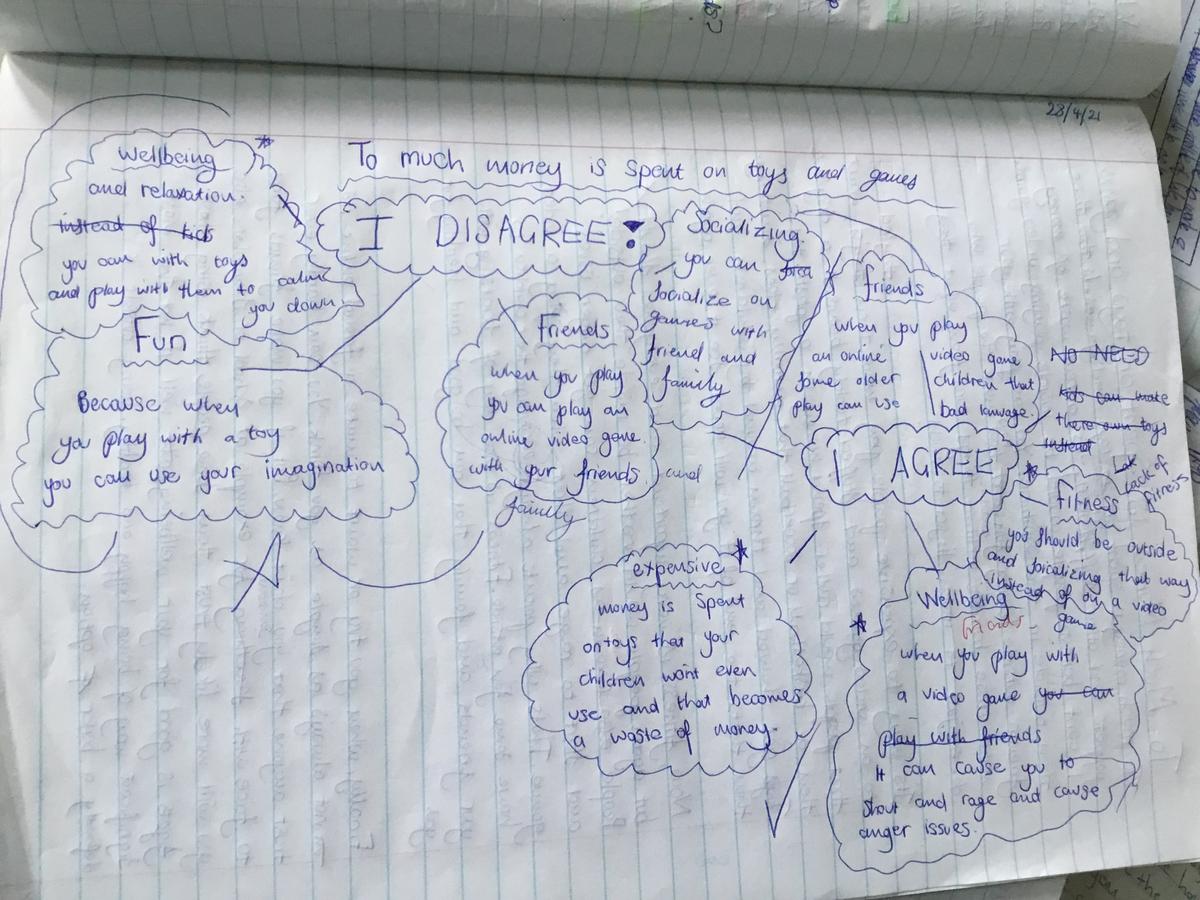 23/4/21
To much money is spent on toys and games
Wellbeing
and relaxation.
instead of kids
you can with toys
and play with them to calm
you down
I DISAGREE!
Fun
Because when
you play with a toy
you can use your imagination
Friends
when you play
you can play an
online video game
with your friends and
family
Socializing
you can
Socialize on
games with
friend and
family
friends
when you play
an online video game
some older children that
play can use bad
I AGREE
NO NEED
kids can make
there own toys
instead
fitness
Lack of
fitness
you should be outside
and socializing that way
instead of on a video
game
expensive
money is spent
on toys that your
children won't even
use and that becomes
a waste of money.
Wellbeing
friends
when you play with
a video game you can
play with friends
It can cause you to
Shout and rage and cause
anger issues.